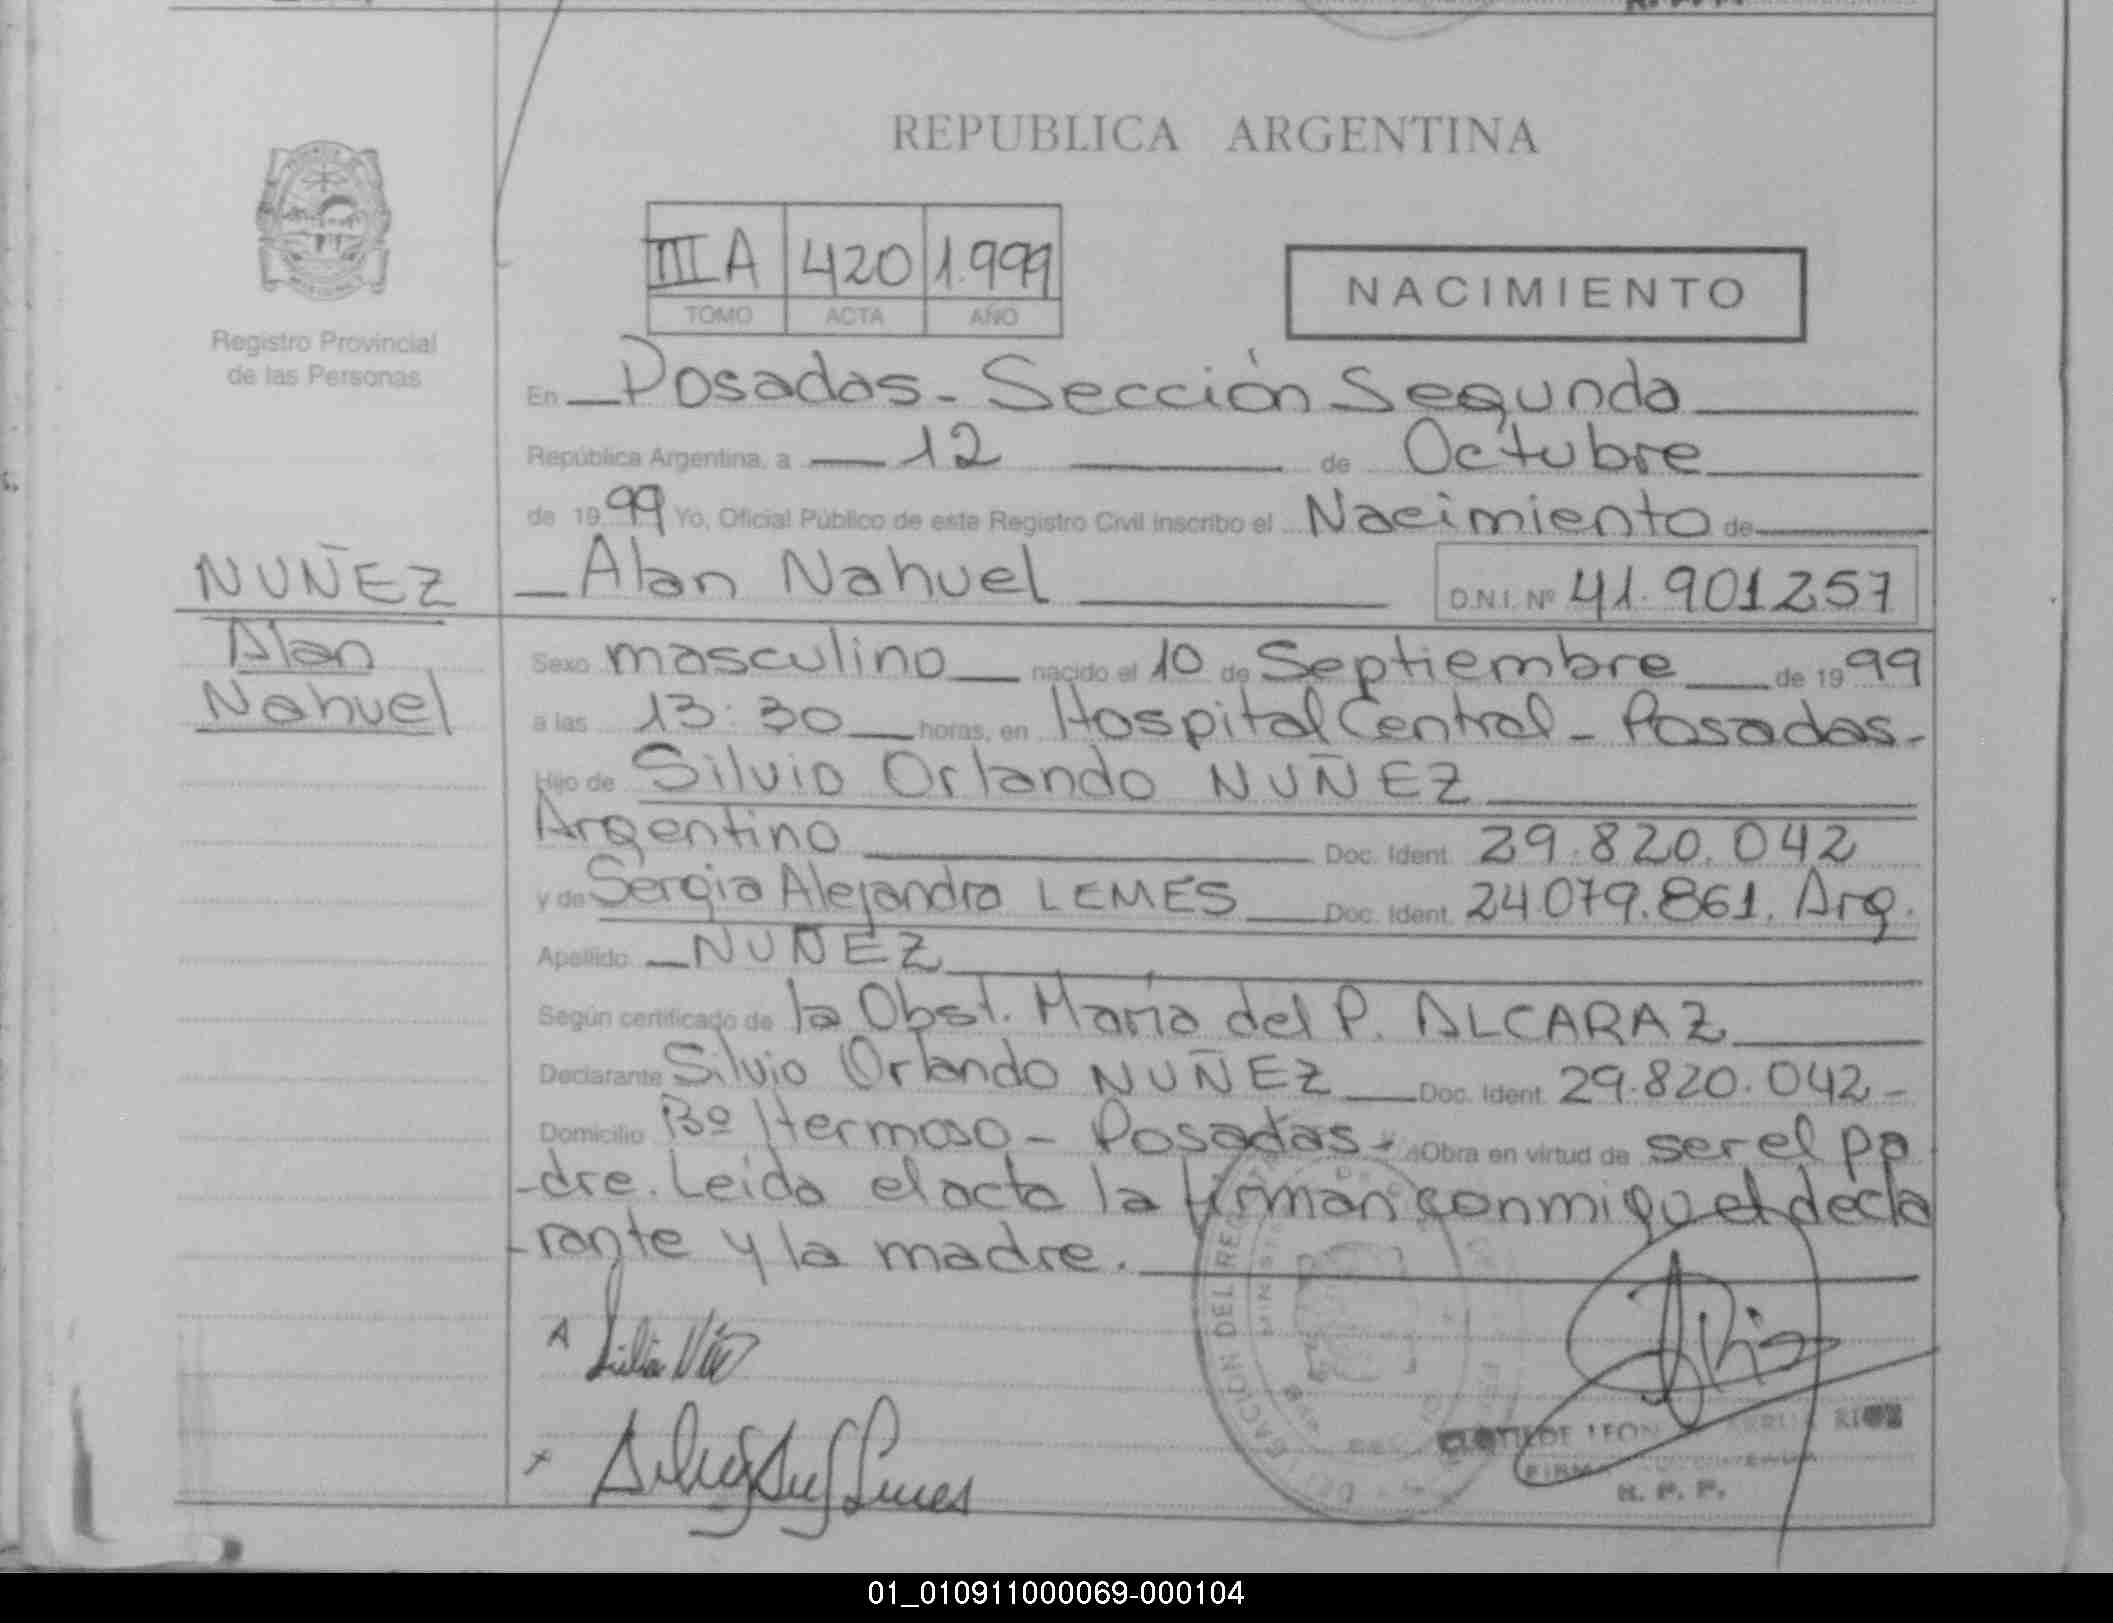 REPUBLICA ARGENTINA
Registro Provincial
de las Personas
III A 420 1.999
TOMO ACTA AÑO
NACIMIENTO
En Posadas - Sección Segunda
República Argentina, a 12 de Octubre
de 1999 Yo, Oficial Público de este Registro Civil inscribo el Nacimiento de
NUÑEZ
Alan
Nahuel
Alan Nahuel D.N.I. Nº 41.901257
Sexo masculino nacido el 10 de Septiembre de 1999
a las 13:30 horas, en Hospital Central - Posadas-
Hijo de Silvio Orlando NUÑEZ
Argentino Doc. Ident. 29.820.042
y de Sergia Alejandra LEMES Doc. Ident. 24.079.861. Arg.
Apellido NUÑEZ
Según certificado de la Obst. María del P. ALCARAZ
Declarante Silvio Orlando NUÑEZ Doc. Ident. 29.820.042-
Domicilio Bº Hermoso - Posadas- Obra en virtud de ser el pa
-dre. Leida el acta la firman conmigo el decla
-rante y la madre.
DEL
LEON
R. P. P.
01_010911000069-000104